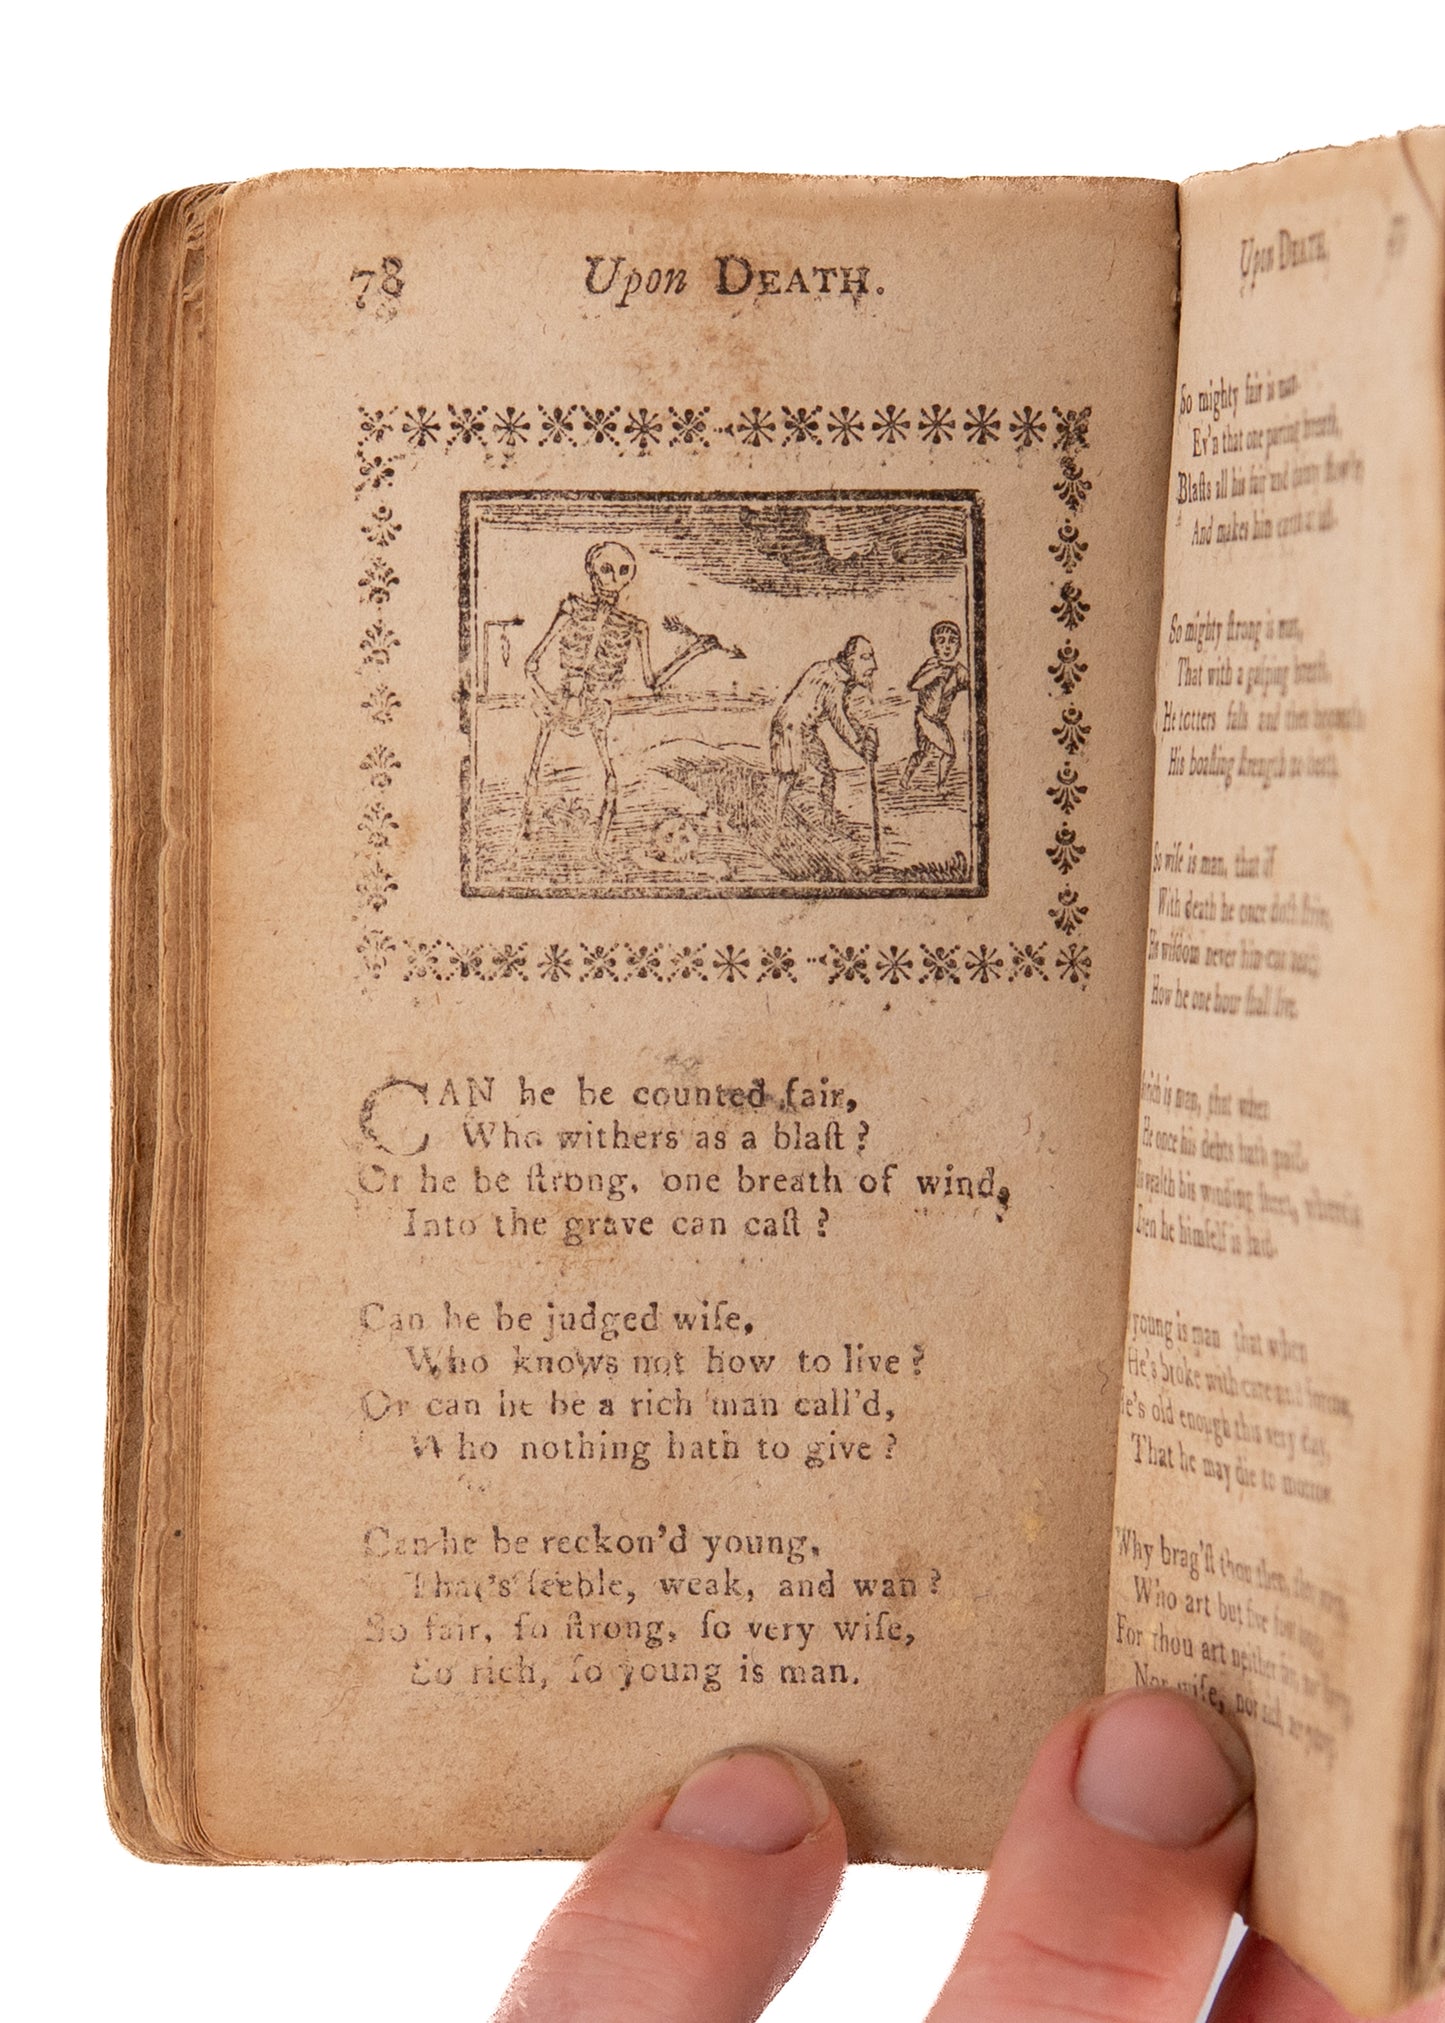 78 Upon DEATH.
CAN he be counted fair,
Who withers as a blaſt ?
Or he be ſtrong, one breath of wind,
Into the grave can caſt ?
Can he be judged wiſe,
Who knows not how to live ?
Or can he be a rich man call'd,
Who nothing hath to give ?
Can he be reckon'd young,
That's feeble, weak, and wan ?
So fair, ſo ſtrong, ſo very wiſe,
So rich, ſo young is man.
Upon DEATH.
So mighty fair is man,
Ev'n that one parting breath,
Blaſts all his fair and
And makes him
So mighty ſtrong is man,
That with a gaſping breath,
He totters falls and then
His boaſting ſtrength to death.
So wiſe is man, that if
With death he once doth ſtrive,
His wiſdom never him can
How he one hour ſhall live.
rich is man, that when
He once his debts hath paid,
wealth his winding ſheet,
Even he himſelf is laid.
young is man that when
He's broke with care and
He's old enough this very day,
That he may die to morrow.
Why brag'ſt thou then,
Who art but five foot
For thou art neither fair, nor ſtrong
Nor wiſe, nor rich, nor young